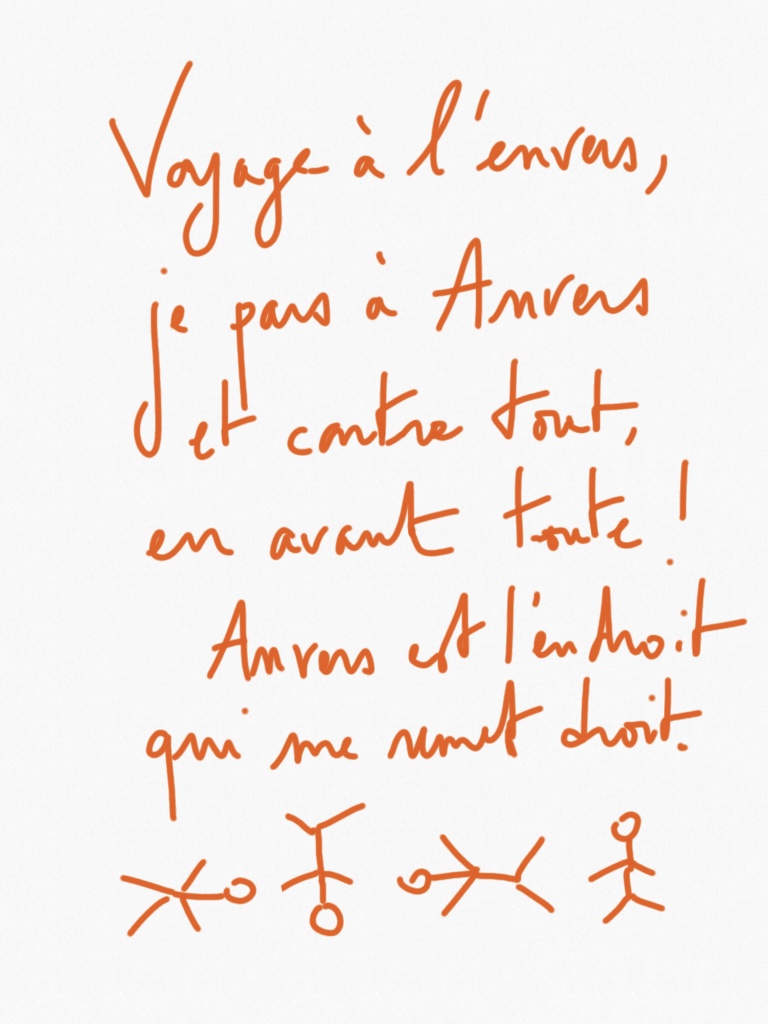 Voyage à l'envers,
je pars à Anvers
et contre tout,
en avant toute !
Anvers est l'endroit
qui me remet droit.